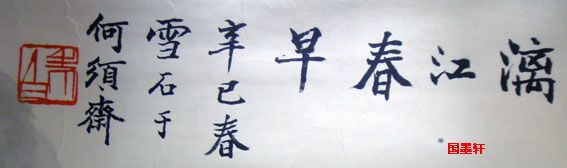 漓江春早
辛巳春
雪石于
何须斋
国墨轩